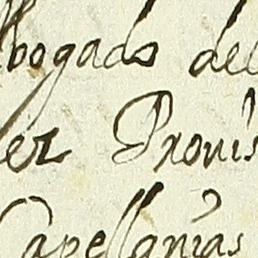 bogado del
er Provis
Capellanias